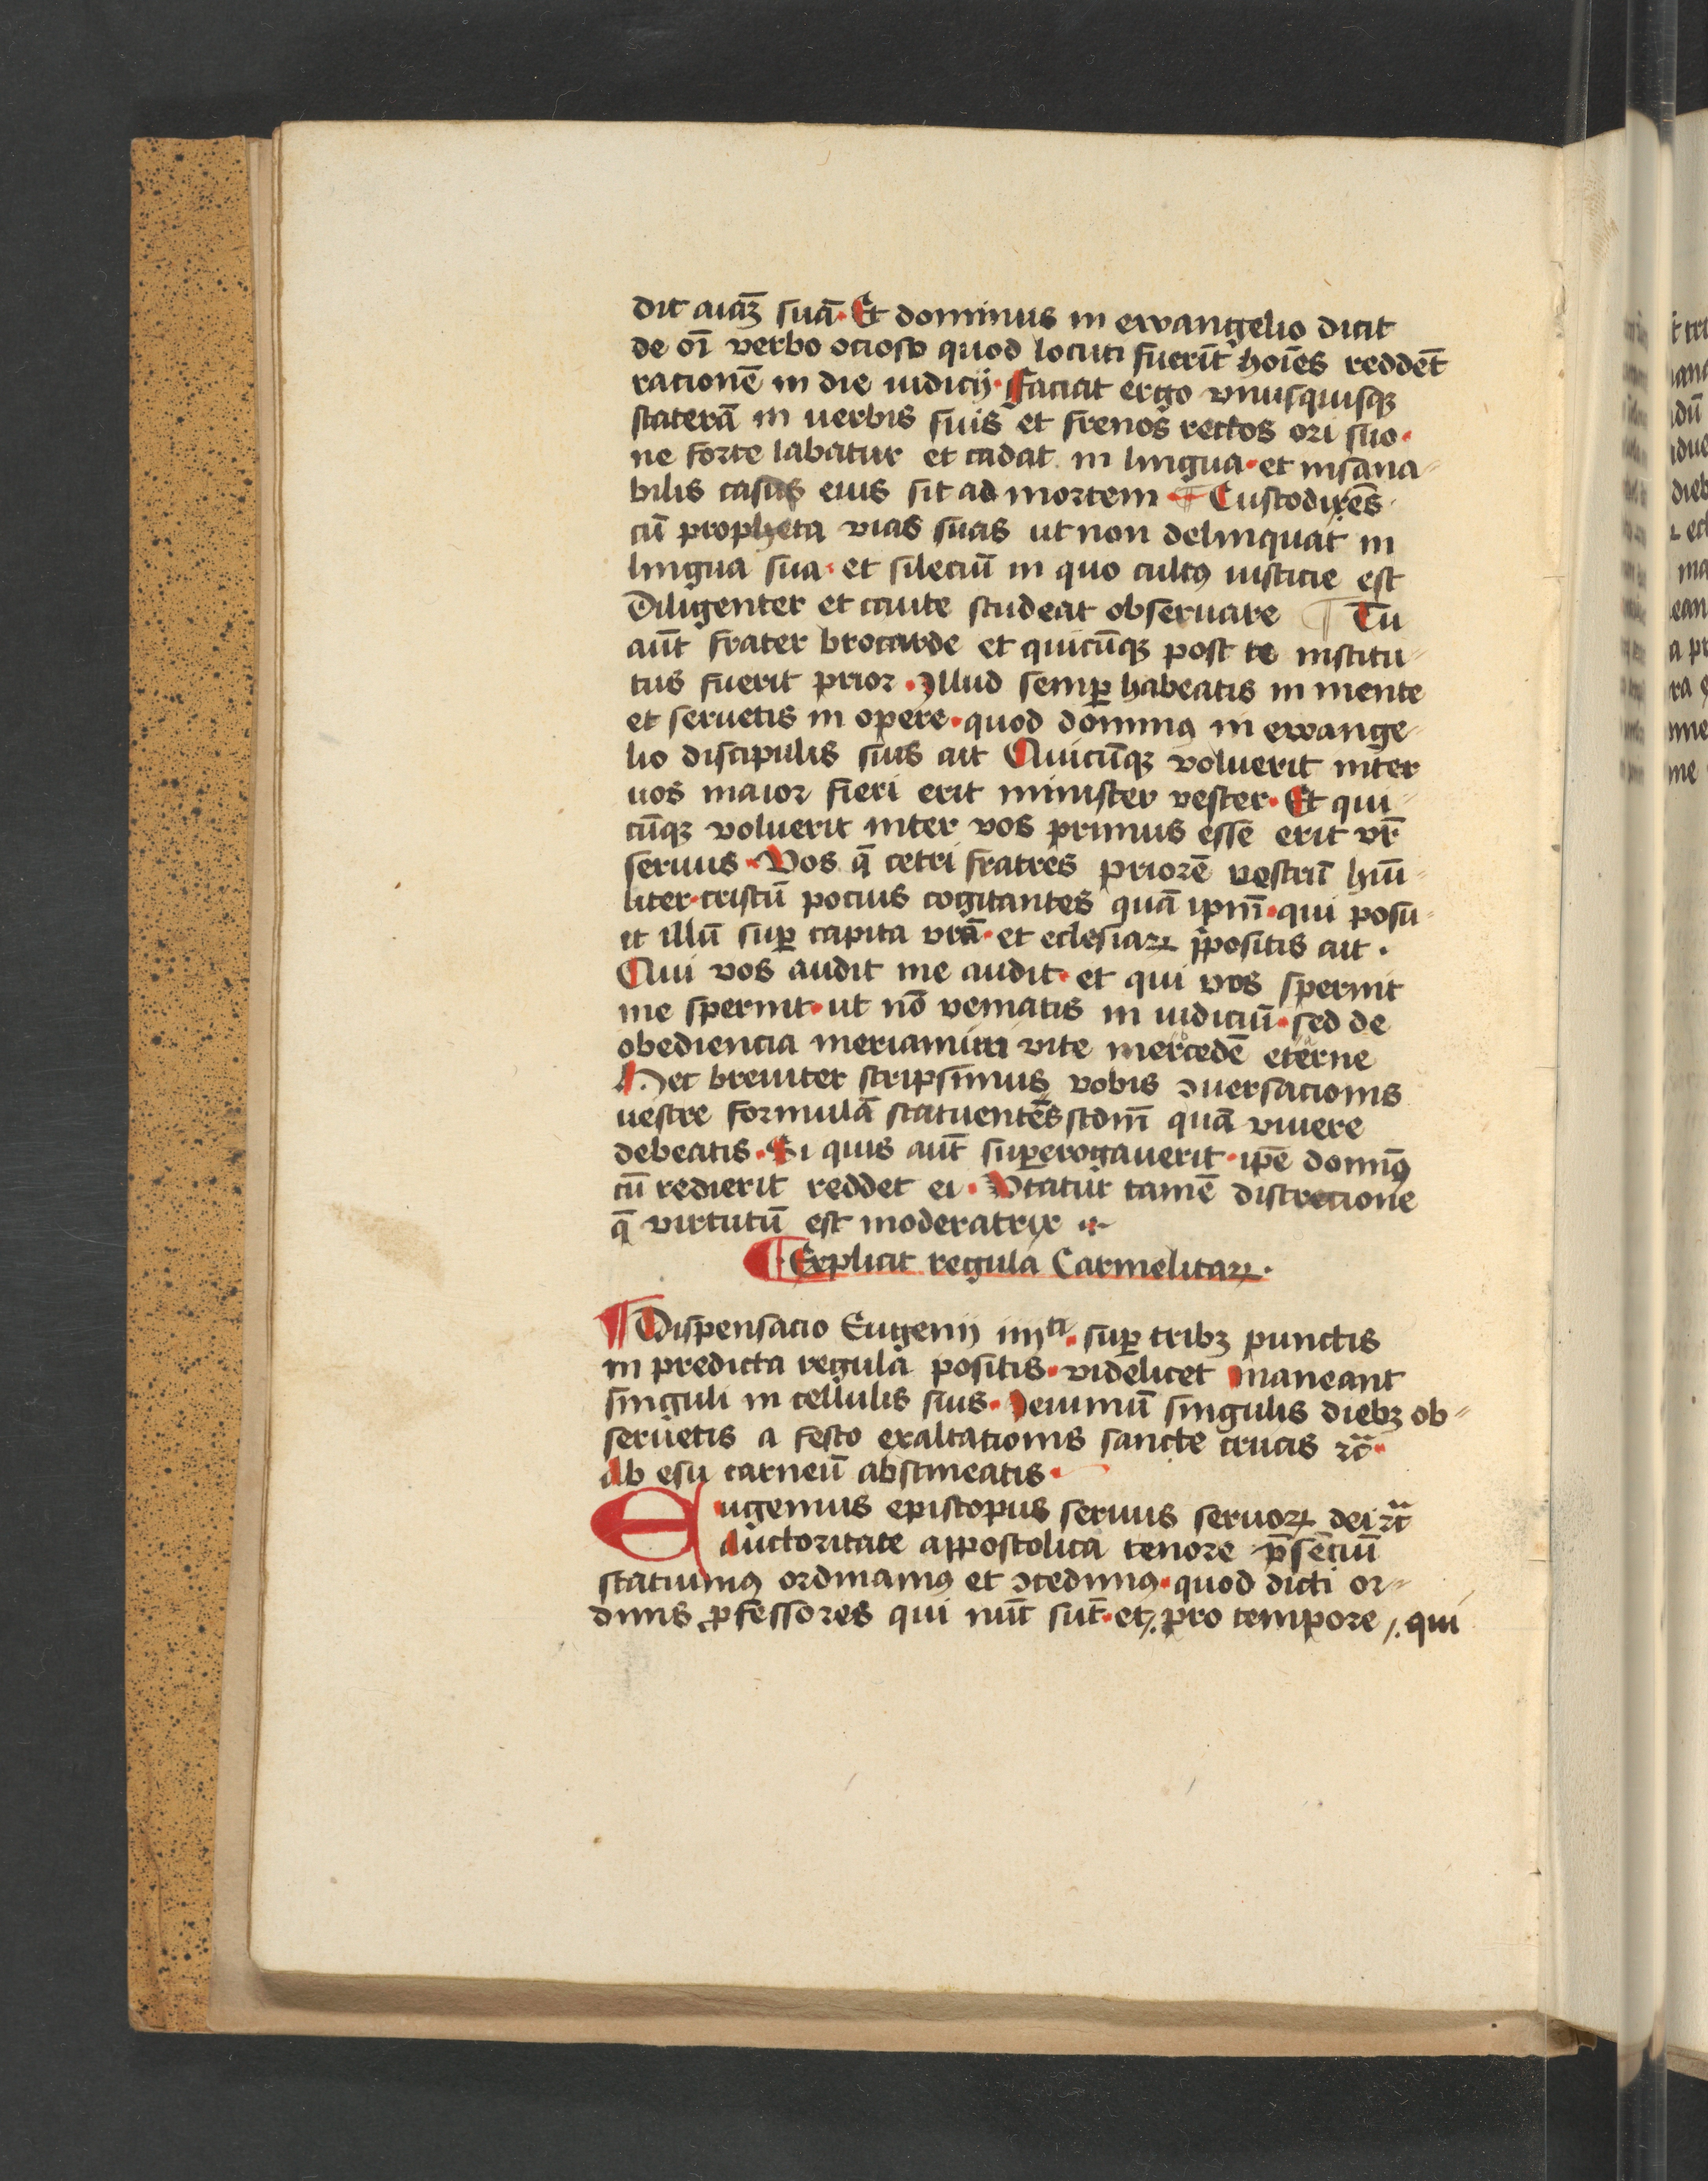 dit aīaꝫ suā· Et dominus in ewangelio dicit
de oī verbo ocioso quod locuti fuerīt hoīes reddēt
racionē in die iudicij· Faciat ergo vnusquisqꝫ
staterā in uerbis suis et frenos rectos ori suo·
ne forte labatur et cadat in lingua· et insana⸗
bilis casus eius sit ad mortem ¶ Custodiens
cū propheta vias suas ut non delinquat in
lingua sua· et silēciū in quo cultꝯ iusticie est
Diligenter et caute studeat obseruare ¶ Tu
aūt frater brocarde et quicūqꝫ post te institu⸗
tus fuerit prior· Illud semꝑ habeatis in mente
et seruetis in opere· quod dominꝯ in ewange⸗
lio discipulis suis ait Quicūqꝫ voluerit inter
uos maior fieri erit minister vester· Et qui⸗
cūqꝫ voluerit inter vos primus esse erit vr̄
seruus· Vos qꝫ ceteri fratres priorē vestrū hūi⸗
liter· cristū pocius cogitantes quā ipm̄· qui posu⸗
it illū suꝑ capita vrā· et eclesiaꝝ p̄positis ait·
Qui vos audit me audit· et qui vos spernit
me spernit· ut nō veniatis in iudiciū· sed de
obediencia meriamini vite mercedē eterne
Hec breuiter scripsimus vobis ꝯuersacionis
uestre formulā statuentes scdm̄ quā viuere
debeatis· Si quis aūt supererogauerit· ipe dominꝯ
cū redierit reddet ei· Vtatur tamē discrecione
q̄ virtutū est moderatrix
¶ Explicit regula Carmelitaꝝ·
¶ Dispensacio Eugenij iiijti· suꝑ tribꝫ punctis
in predicta regula positis· videlicet maneant
singuli in cellulis suis· Ieiuniū singulis diebꝫ ob⸗
seruetis a festo exaltationis sancte crucis ꝛc̄·
Ab esu carneū abstineatis·
Eugenius episcopus seruus seruoꝝ dei ꝛc̄
Auctoritate appostolica tenore p̄senciū
statuimꝯ ordinamꝯ et ꝯcedimꝯ· quod dicti or⸗
dinis ꝓfessores qui nūc sūt· et /. pro tempore /. qui